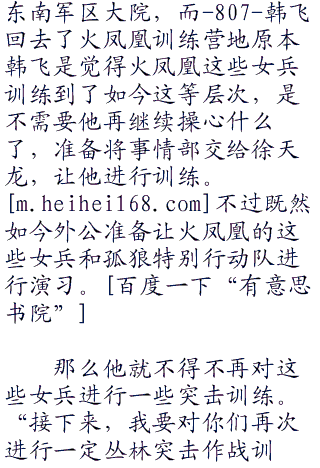 东南军区大院，而-807-韩飞
回去了火凤凰训练营地原本
韩飞是觉得火凤凰这些女兵
训练到了如今这等层次，是
不需要他再继续操心什么
了，准备将事情部交给徐天
龙，让他进行训练。
[m.heihei168.com]不过既然
如今外公准备让火凤凰的这
些女兵和孤狼特别行动队进
行演习。[百度一下“有意思
书院”]
那么他就不得不再对这
些女兵进行一些突击训练。
“接下来，我要对你们再次
进行一定丛林突击作战训